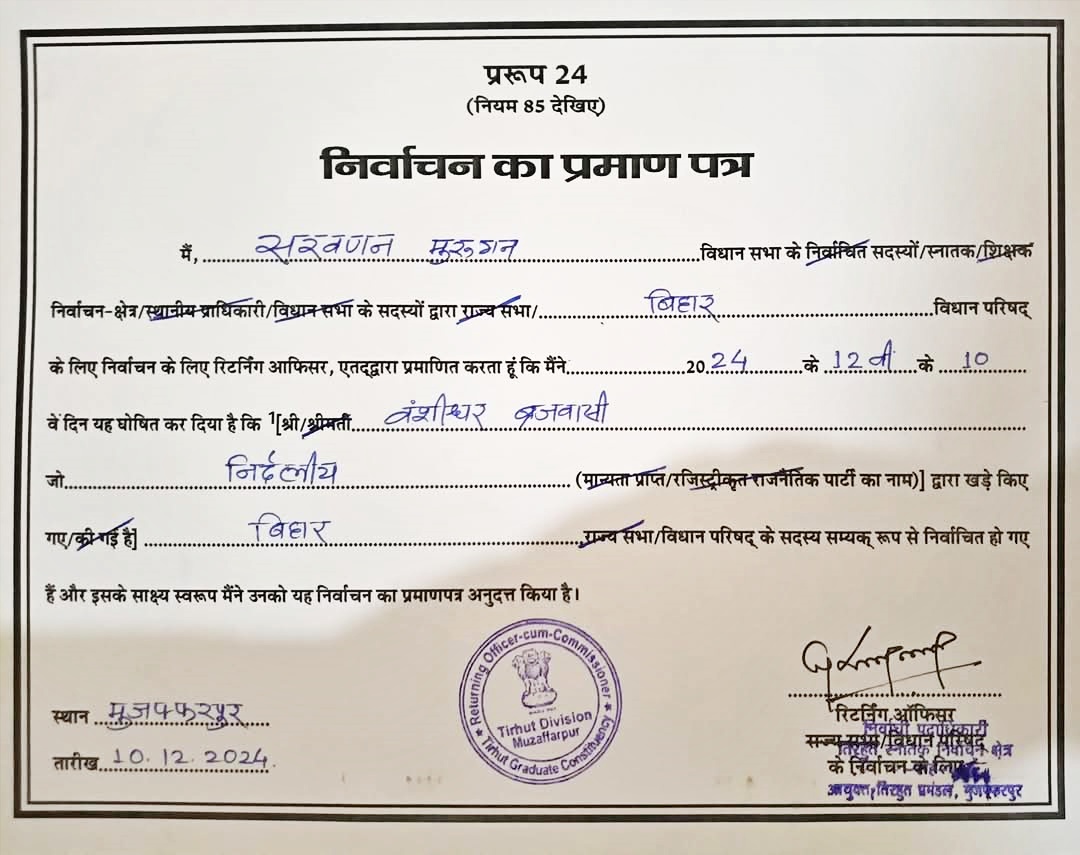 प्ररूप 24
(नियम 85 देखिए)
निर्वाचन का प्रमाण पत्र
मैं, सरवणन मुरुगन विधान सभा के निर्वाचित सदस्यों/स्नातक/शिक्षक
निर्वाचन-क्षेत्र/स्थानीय प्राधिकारी/विधान सभा के सदस्यों द्वारा राज्य सभा/ बिहार विधान परिषद्
के लिए निर्वाचन के लिए रिटर्निंग आफिसर, एतद्द्वारा प्रमाणित करता हूं कि मैंने 2024 के 12वीं के 10
वें दिन यह घोषित कर दिया है कि 1[श्री/श्रीमती वंशीधर ब्रजवासी
जो निर्दलीय (मान्यता प्राप्त/रजिस्ट्रीकृत राजनैतिक पार्टी का नाम)] द्वारा खड़े किए
गए/की गई है] बिहार राज्य सभा/विधान परिषद् के सदस्य सम्यक् रूप से निर्वाचित हो गए
हैं और इसके साक्ष्य स्वरूप मैंने उनको यह निर्वाचन का प्रमाणपत्र अनुदत्त किया है।
Returning Officer-cum-Commissioner
Tirhut Division
Muzaffarpur
Tirhut Graduate Constituency
स्थान मुजफ्फरपुर
तारीख 10.12.2024.
रिटर्निंग ऑफिसर
निर्वाची पदाधिकारी
राज्य सभा/विधान परिषद्
तिरहुत स्नातक निर्वाचन क्षेत्र
के निर्वाचन के लिए
आयुक्त, तिरहुत प्रमंडल, मुजफ्फरपुर